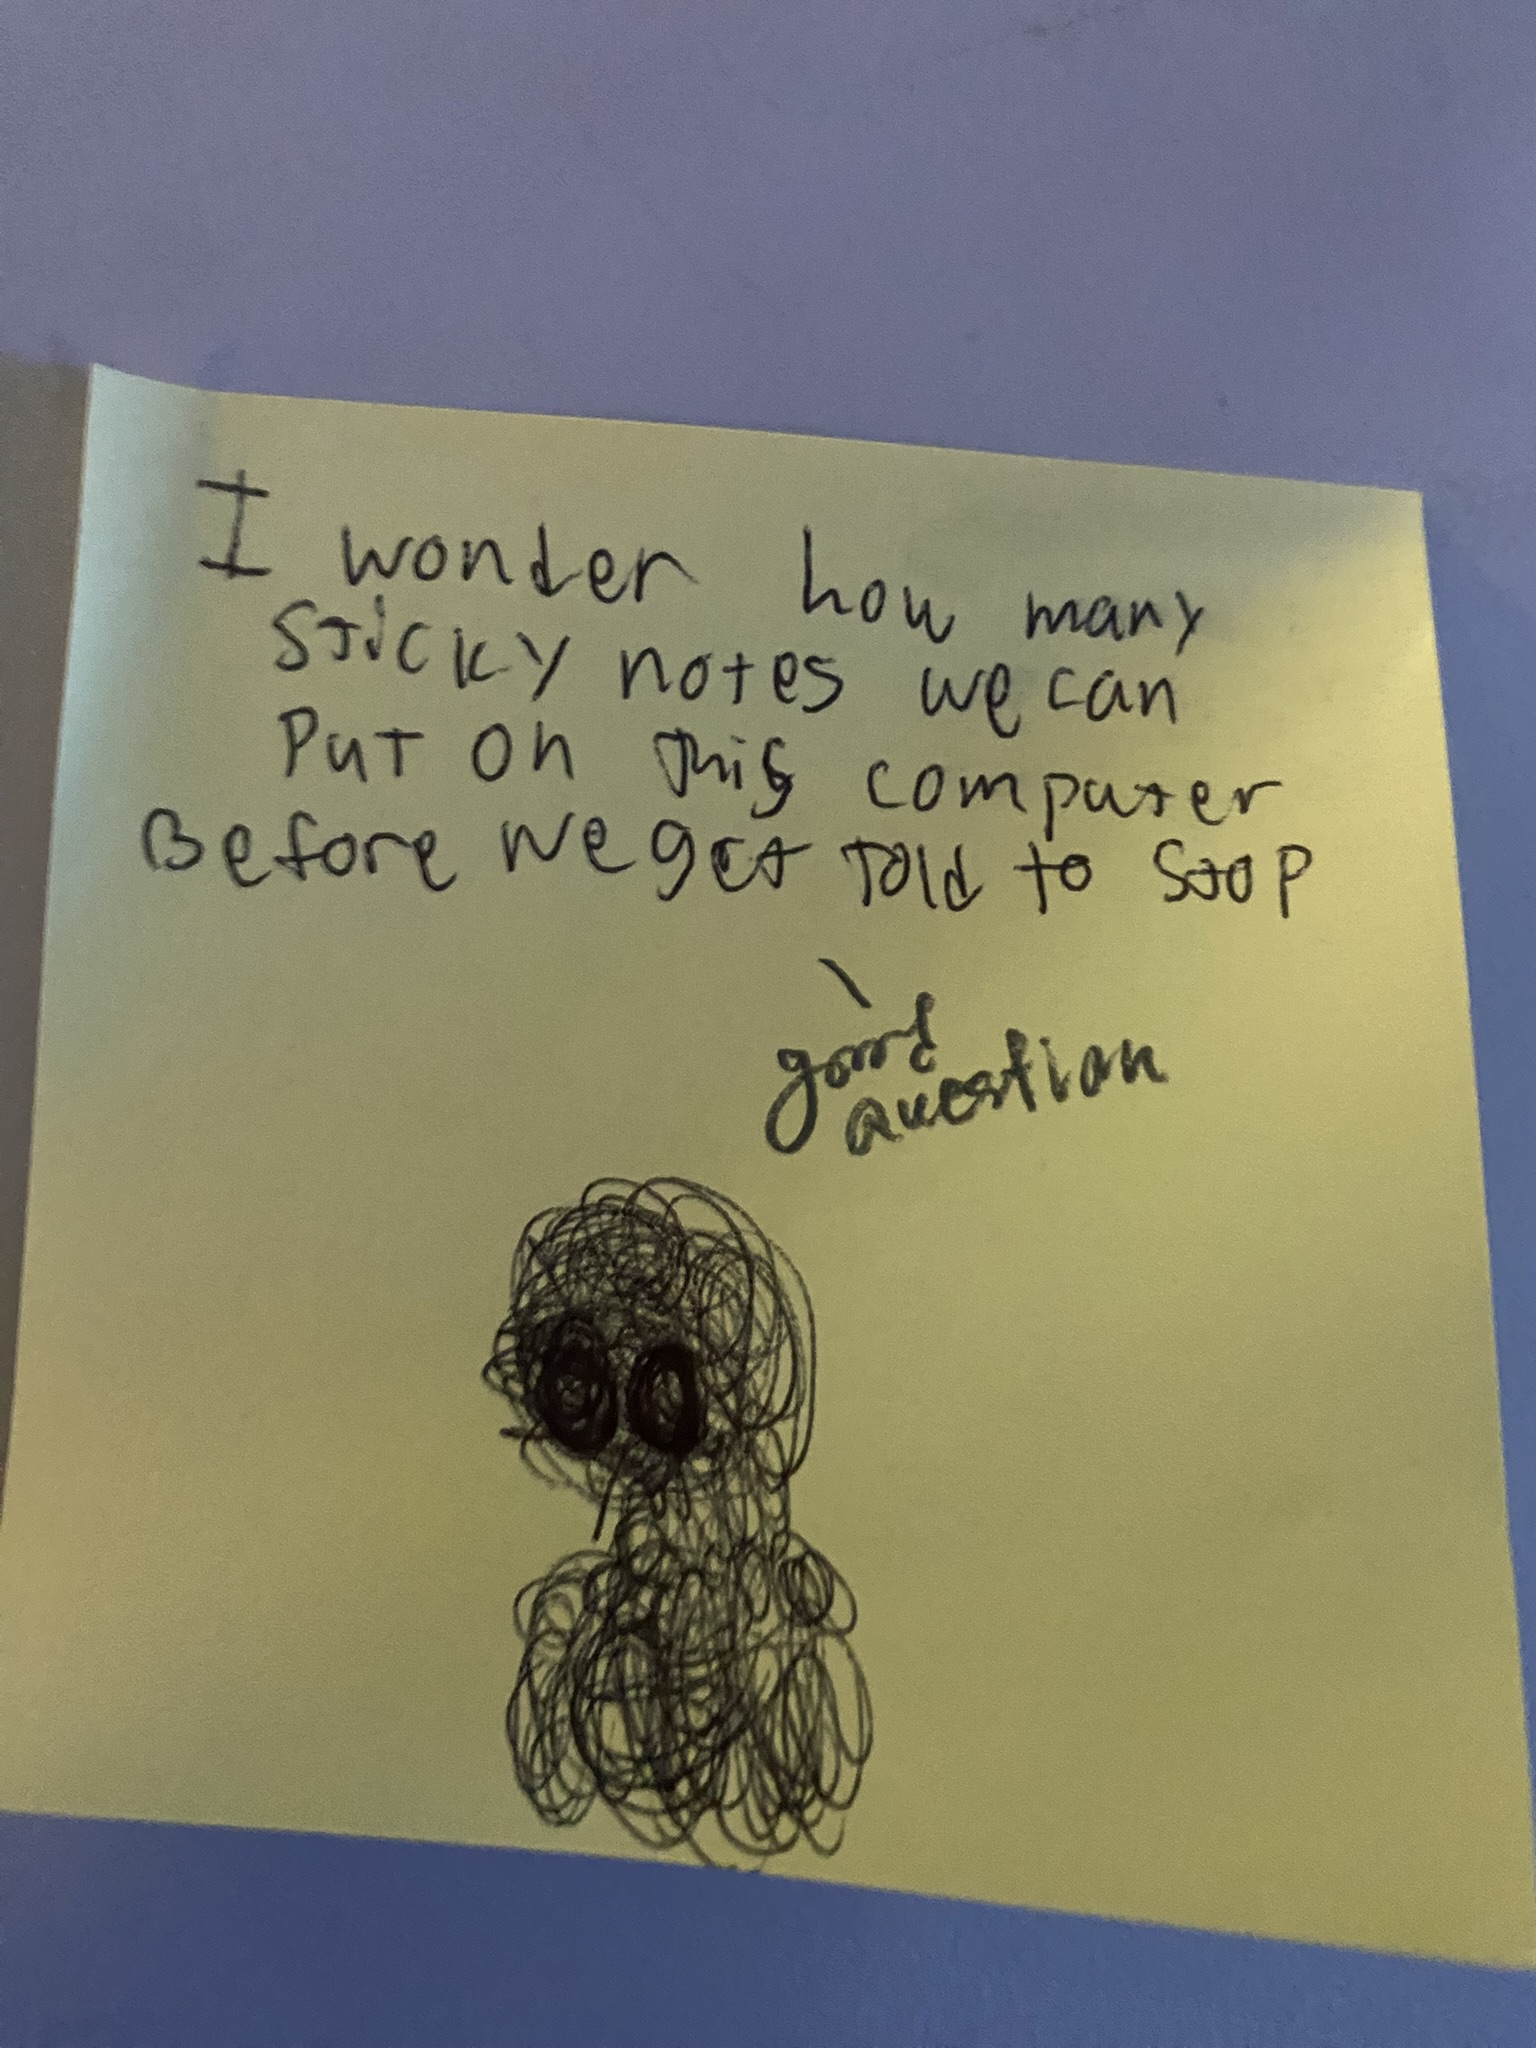 I wonder how many
Sticky notes we can
Put on this computer
Before we get Told to Stop
good
question